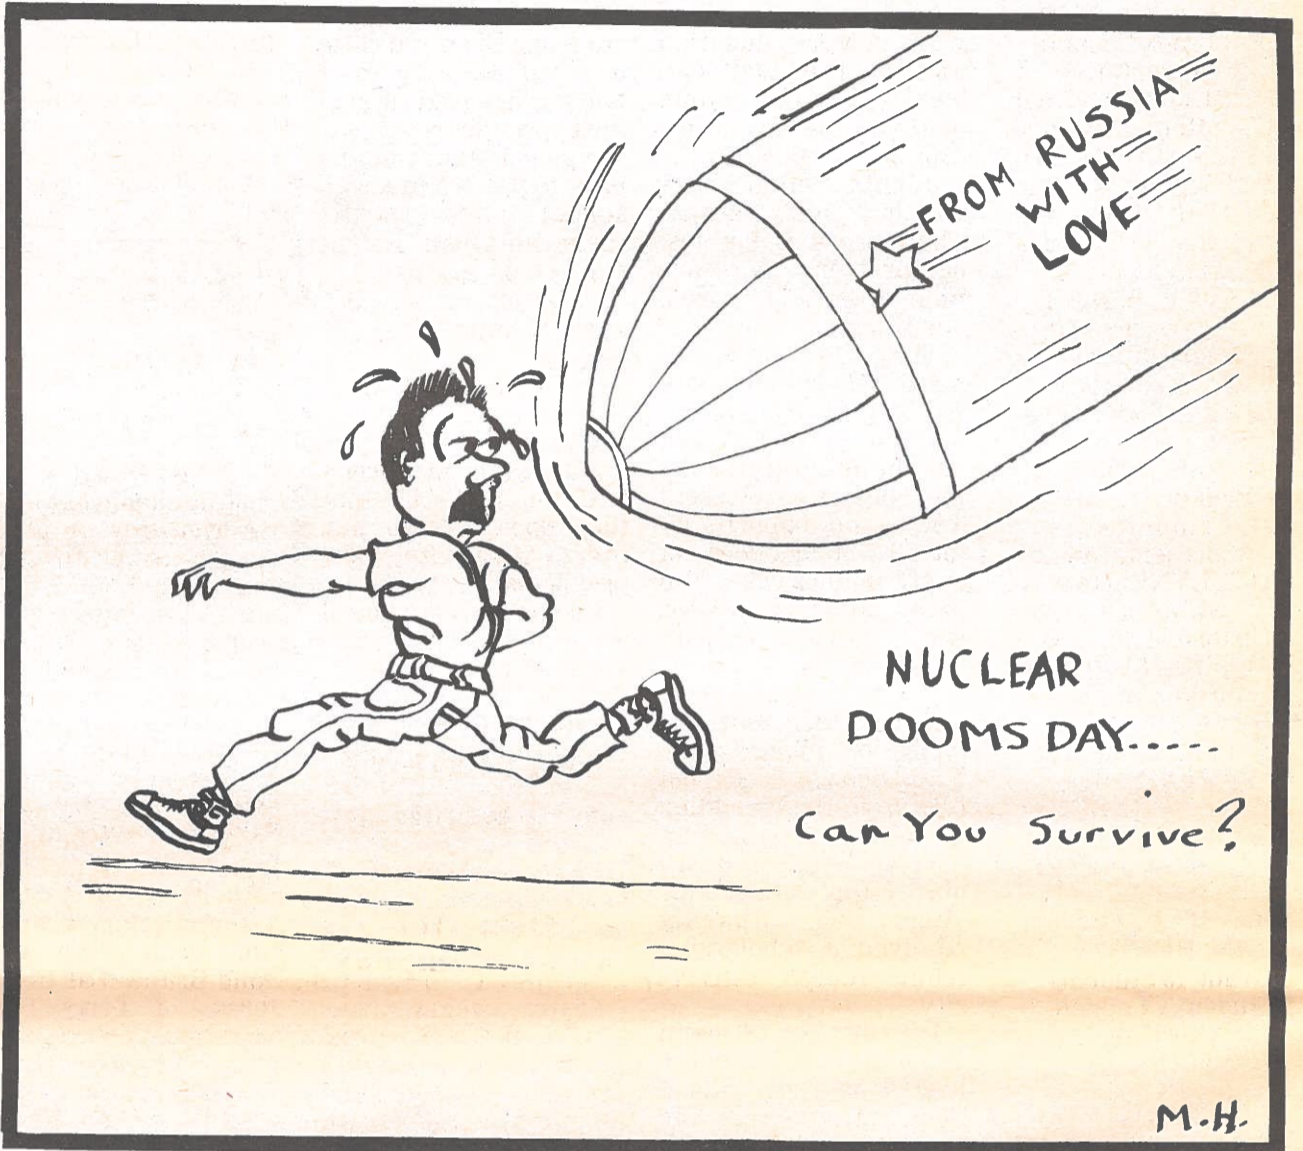 FROM RUSSIA
WITH
LOVE
NUCLEAR
DOOMS DAY.....
Can You Survive?
M.H.